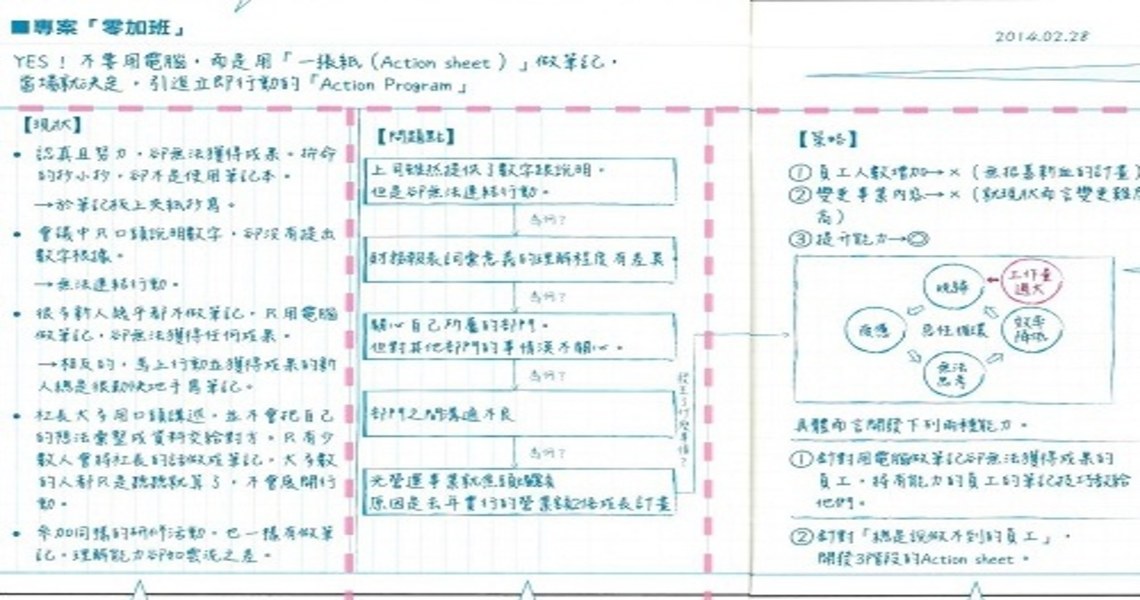 ■專案「零加班」
2014.02.28
YES！不要用電腦，而是用「一張紙（Action sheet）」做筆記，
當場就決定，引進立即行動的「Action Program」
【現狀】
• 認真且努力，卻無法獲得成果。拚命
的抄小抄，卻不是使用筆記本。
→於筆記板上夾紙抄寫。
• 會議中只口頭說明數字，卻沒有提出
數字根據。
→無法連結行動。
• 很多新人幾乎都不做筆記，只用電腦
做筆記，卻無法獲得任何成果。
→相反的，馬上行動並獲得成果的新
人總是很勤快地手寫筆記。
• 社長大多用口頭講述，並不會把自己
的想法彙整成資料交給對方。只有少
數人會將社長的話做成筆記。大多數
的人都只是聽聽就算了，不會展開行
動。
• 參加同樣的研修活動，也一樣有做筆
記，理解能力卻如雲泥之差。
【問題點】
上司雖然提供了數字跟說明，
但是卻無法連結行動。
為何？
財務報表詞彙意義的理解程度有差異
為何？
關心自己所屬的部門，
但對其他部門的事情漠不關心。
為何？
部門之間溝通不良
為何？
光營運事業就焦頭爛額
原因是去年實行的營業額倍成長計畫
發生了什麼事情？
【策略】
①員工人數增加→×（無招募新血的計畫）
②變更事業內容→×（就現狀而言變更難
高）
③提升能力→◎
工作量
過大
疲憊
惡性循環
效率
降低
無法
思考
具體而言開發下列兩種能力。
①針對用電腦做筆記卻無法獲得成果的
員工，將有能力的員工的筆記技巧教給
他們。
②針對「總是說做不到的員工」，
開發3階段的Action sheet。